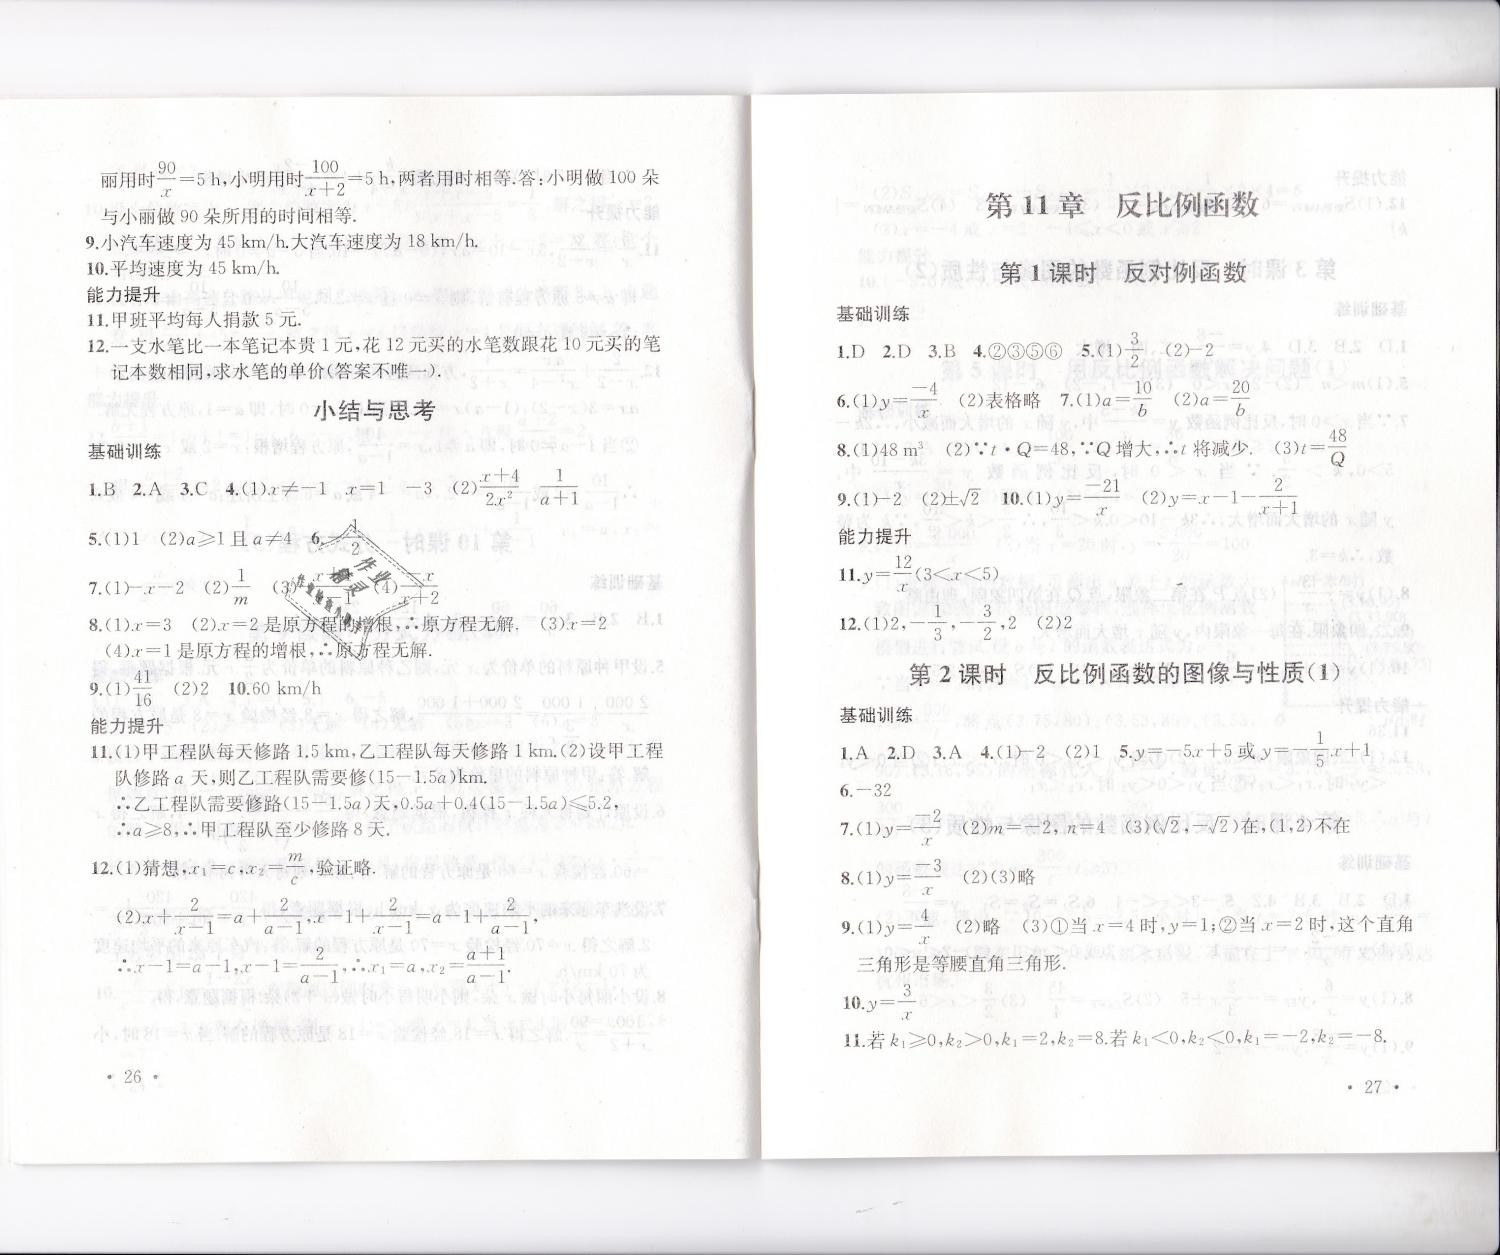 丽用时90/x=5 h,小明用时100/(x+2)=5 h,两者用时相等.答:小明做 100 朵
与小丽做 90 朵所用的时间相等.
9.小汽车速度为 45 km/h.大汽车速度为 18 km/h.
10.平均速度为 45 km/h.
能力提升
11.甲班平均每人捐款 5 元.
12.一支水笔比一本笔记本贵 1 元,花 12 元买的水笔数跟花 10 元买的笔
记本数相同,求水笔的单价(答案不唯一).
小结与思考
基础训练
1.B 2.A 3.C 4.(1)x≠-1 x=1 -3 (2)(x+4)/(2x²) 1/(a+1)
5.(1)1 (2)a≥1且a≠4 6.
7.(1)-x-2 (2)1/m (3) (4)-x/(x+2)
8.(1)x=3 (2)x=2是原方程的增根,∴原方程无解. (3)x=2
(4)x=1是原方程的增根,∴原方程无解.
9.(1)41/16 (2)2 10.60 km/h
能力提升
11.(1)甲工程队每天修路 1.5 km,乙工程队每天修路 1 km.(2)设甲工程
队修路 a 天,则乙工程队需要修(15-1.5a)km.
∴乙工程队需要修路(15-1.5a)天,0.5a+0.4(15-1.5a)≤5.2,
∴a≥8,∴甲工程队至少修路 8 天.
12.(1)猜想,x₁=c,x₂=m/c,验证略.
(2)x+2/(x-1)=a+2/(a-1),x-1+2/(x-1)=a-1+2/(a-1),
∴x-1=a-1,x-1=2/(a-1),∴x₁=a,x₂=(a+1)/(a-1).
· 26 ·
第 11 章 反比例函数
第 1 课时 反对例函数
基础训练
1.D 2.D 3.B 4.②③⑤⑥ 5.(1)3/2 (2)-2
6.(1)y=-4/x (2)表格略 7.(1)a=10/b (2)a=20/b
8.(1)48 m³ (2)∵t·Q=48,∵Q增大,∴t 将减少. (3)t=48/Q
9.(1)-2 (2)±√2 10.(1)y=-21/x (2)y=x-1-2/(x+1)
能力提升
11.y=12/x(3<x<5)
12.(1)2,-1/3,-3/2,2 (2)2
第 2 课时 反比例函数的图像与性质(1)
基础训练
1.A 2.D 3.A 4.(1)-2 (2)1 5.y=-5x+5或y=-1/5x+1
6.-32
7.(1)y=-2/x (2)m=-2,n=4 (3)(√2,-√2)在,(1,2)不在
8.(1)y=-3/x (2)(3)略
9.(1)y=4/x (2)略 (3)①当 x=4 时,y=1;②当 x=2 时,这个直角
三角形是等腰直角三角形.
10.y=3/x
11.若 k₁≥0,k₂>0,k₁=2,k₂=8.若 k₁<0,k₂<0,k₁=-2,k₂=-8.
· 27 ·